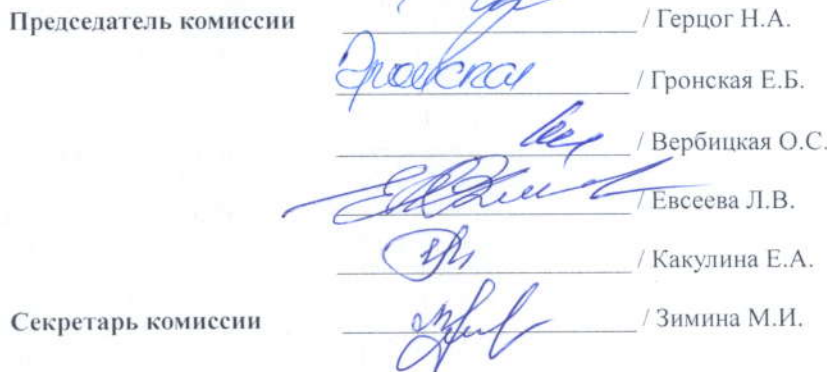 Председатель комиссии / Герцог Н.А.
/ Гронская Е.Б.
/ Вербицкая О.С.
/ Евсеева Л.В.
/ Какулина Е.А.
Секретарь комиссии / Зимина М.И.